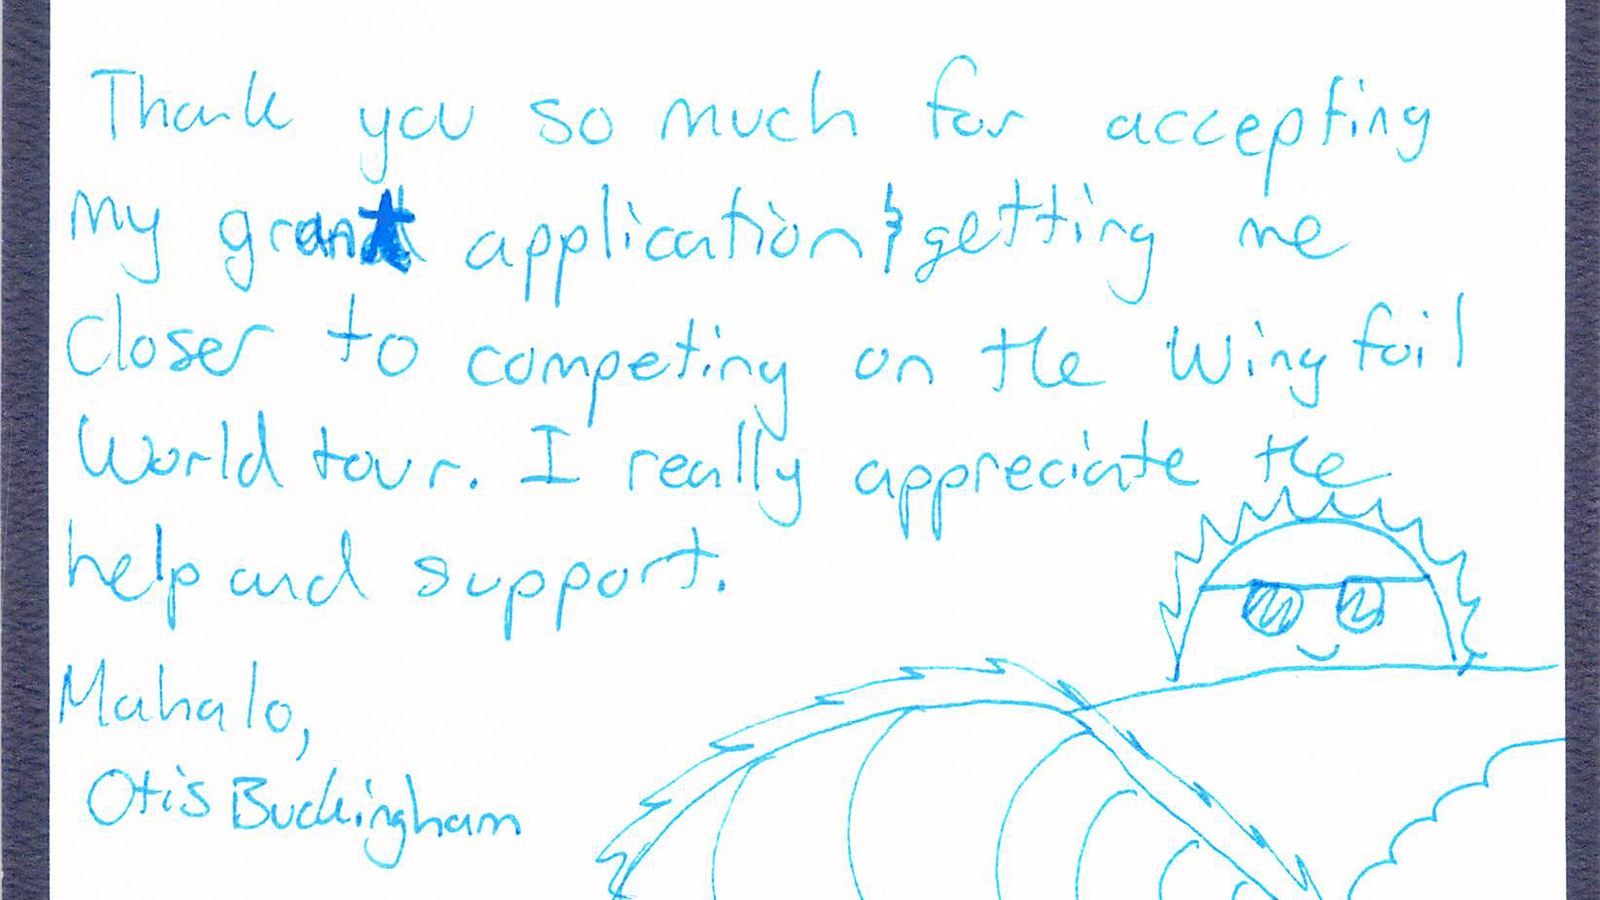 Thank you so much for accepting
my grant application & getting me
closer to competing on the Wingfoil
World tour. I really appreciate the
help and support.
Mahalo,
Otis Buckingham